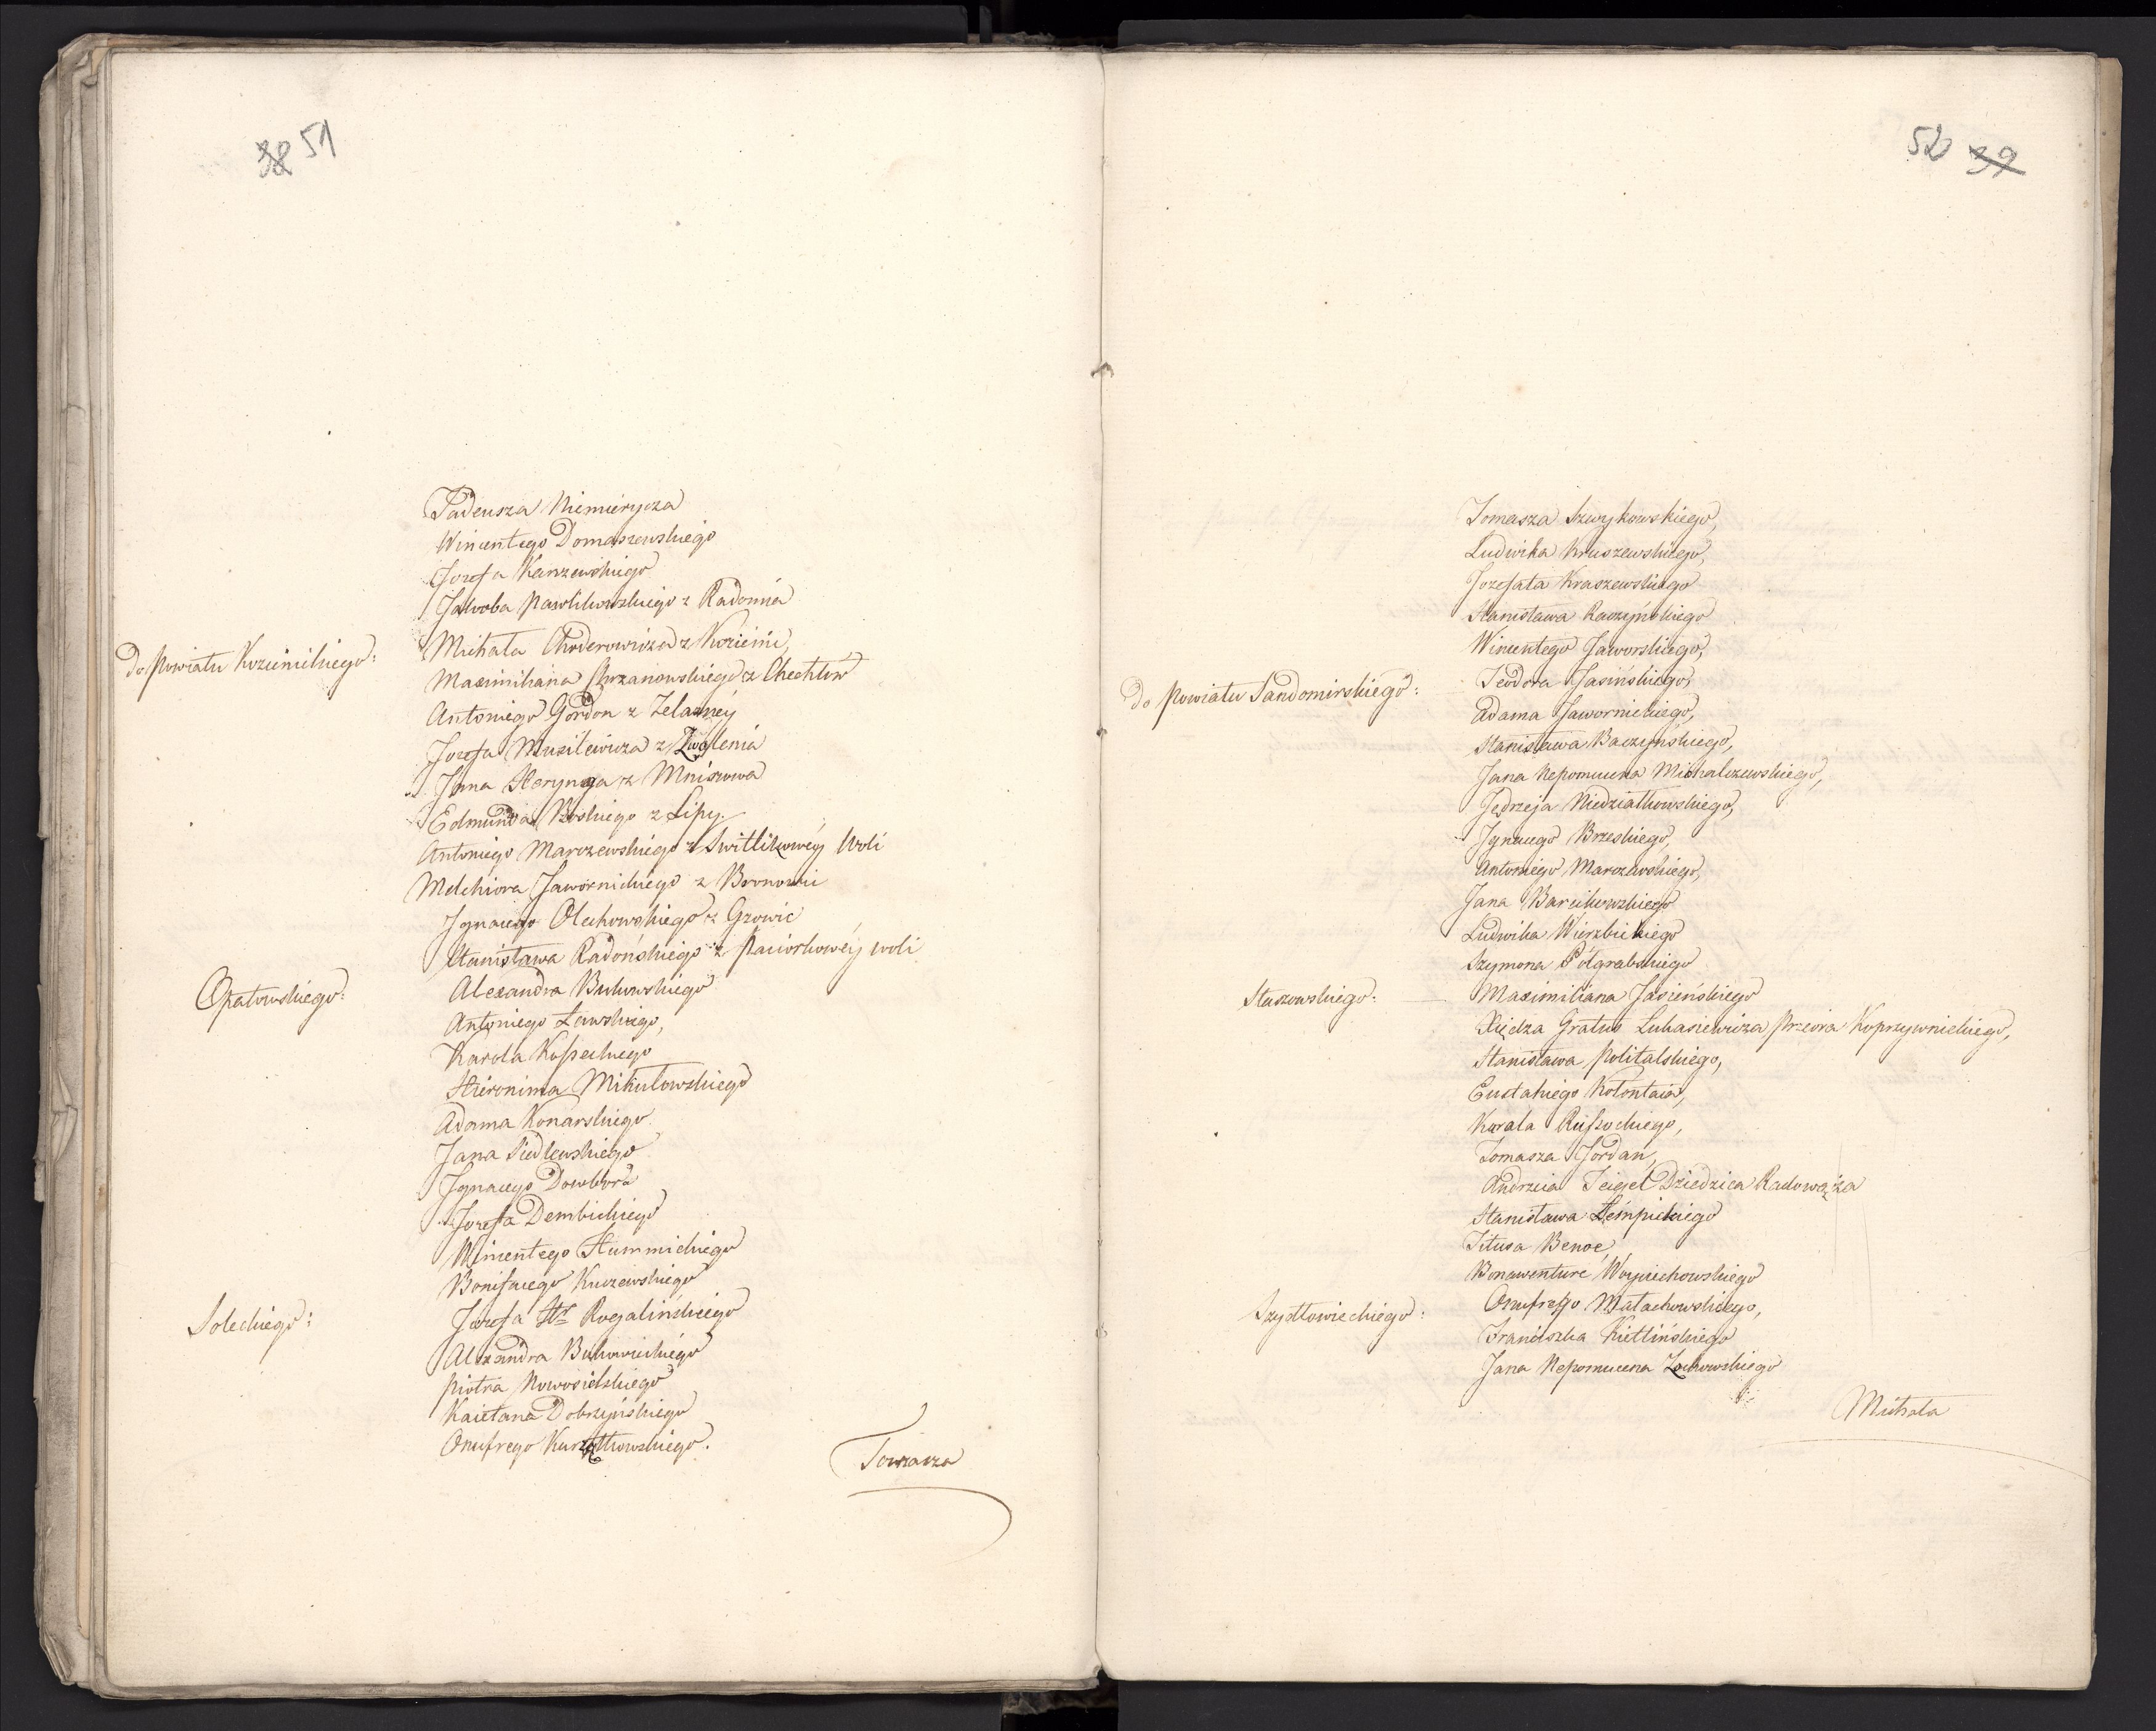 38 51
Tadeusza Niemierycza
Wincentego Domaszewskiego
Jozefa Karszewskiego
Jakooba Pawlikowskiego z Radomia
do Powiatu Kozienickiego:
Michała Choderowicza z Kozienic,
Maximiliana Chrzanowskiego z Chechłów
Antoniego Gordon z Zelazney
Jozefa Musilewicza z Zwolenia
Jana Herynga z Mniszewa
Edmunda Boskiego z Lipy.
Antoniego Marszewskiego z Switlikowéy Woli
Melchiora Jawornickiego z Bronowic
Ignacego Olechowskiego z Gzowic
Stanisława Radońskiego z Paciorkowéy woli
Opatowskiego:
Alexandra Bukowskiego
Antoniego Ławskiego,
Karola Kosseckiego
Hieronima Mikułowskiego
Adama Konarskiego
Jana Siedlewskiego
Ignacego Dowbora
Jozefa Dembickiego
Wincentego Hummickiego
Bonifacego Kuczewskiego
Soleckiego:
Jozefa Hr. Rogalińskiego
Alexandra Bukowieckiego
Piotra Nowosielskiego
Kaietana Dobrzyńskiego
Onufrego Kurzątkowskiego.
Tomasza
52 39
Tomasza Szwykowskiego,
Ludwika Kruszewskiego,
Jozefata Kraszewskiego
Stanisława Raczyńskiego
Wincentego Jaworskiego,
do Powiatu Sandomirskiego:
Teodora Jasińskiego,
Adama Jawornickiego,
Stanisława Baczyńskiego,
Jana Nepomucena Michalczewskiego,
Jędrzeja Niedziałkowskiego,
Ignacego Brzeskiego,
Antoniego Marszewskiego,
Jana Barcikowskiego
Ludwika Wierzbickiego
Szymona Pułgrabskiego
Staszowskiego:
Maximiliana Jasieńskiego
Xiędza Gratus Łukasiewicza Przeora Koprzywnickiego,
Stanisława Politalskiego,
Eustahiego Kołontaia,
Karola Russockiego,
Tomasza Jordan,
Andrzeia Feigel Dziedzica Radowąża
Stanisława Łémpickiego
Titusa Benoe,
Bonawenture Woyciechowskiego
Szydłowieckiego:
Onufrego Małachowskiego,
Franciszka Kietlińskiego
Jana Nepomucena Zochowskiego
Michała